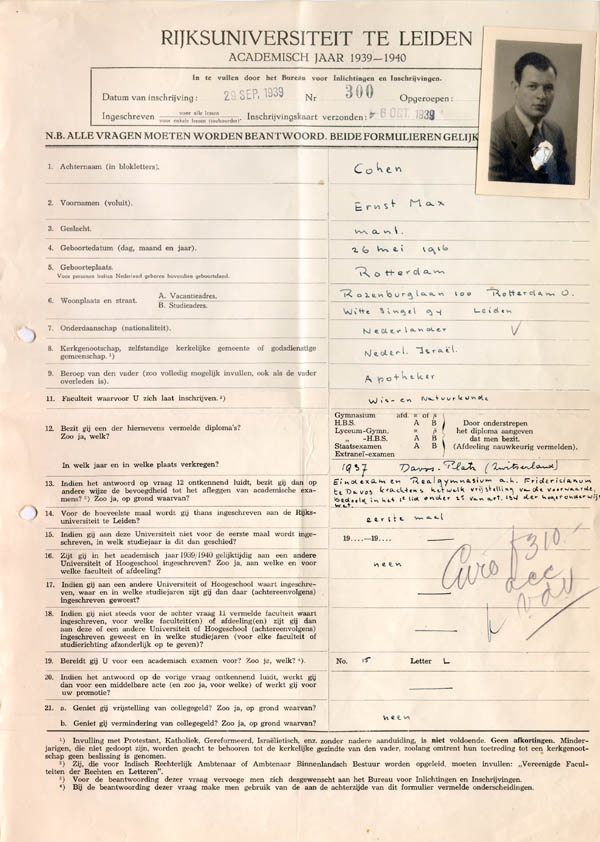 RIJKSUNIVERSITEIT TE LEIDEN
ACADEMISCH JAAR 1939—1940
In te vullen door het Bureau voor Inlichtingen en Inschrijvingen.
Datum van inschrijving: 29 SEP. 1939 Nr 300 Opgeroepen:
Ingeschreven voor alle lessen Inschrijvingskaart verzonden: 6 OCT. 1939
voor enkele lessen (toehoorder)
N.B. ALLE VRAGEN MOETEN WORDEN BEANTWOORD. BEIDE FORMULIEREN GELIJK
1. Achternaam (in blokletters). Cohen
2. Voornamen (voluit). Ernst Max
3. Geslacht. manl.
4. Geboortedatum (dag, maand en jaar). 26 mei 1916
5. Geboorteplaats. Rotterdam
Voor personen buiten Nederland geboren bovendien geboorteland.
6. Woonplaats en straat. A. Vacantieadres. Rozenburglaan 100 Rotterdam O.
B. Studieadres. Witte Singel 94 Leiden
7. Onderdaanschap (nationaliteit). Nederlander
8. Kerkgenootschap, zelfstandige kerkelijke gemeente of godsdienstige
gemeenschap. ¹) Nederl. Israël.
9. Beroep van den vader (zoo volledig mogelijk invullen, ook als de vader
overleden is). Apotheker
11. Faculteit waarvoor U zich laat inschrijven. ²) Wis- en Natuurkunde
12. Bezit gij een der hiernevens vermelde diploma's?
Zoo ja, welk?
Gymnasium afd. α of β
H.B.S. A B
Lyceum-Gymn. α β
„ -H.B.S. A B
Staatsexamen A B
Extranei-examen
Door onderstrepen
het diploma aangeven
dat men bezit.
(Afdeeling nauwkeurig vermelden).
In welk jaar en in welke plaats verkregen? 1937 Davos-Platz (Zwitserland)
13. Indien het antwoord op vraag 12 ontkennend luidt, bezit gij dan op
andere wijze de bevoegdheid tot het afleggen van academische exa-
mens? ³) Zoo ja, op grond waarvan?
Eindexamen Realgymnasium a.h. Fridericianum
te Davos krachtens hetwelk vrijstelling van de voorwaarde,
bedoeld in het 1e lid onder 2e van art. 134 der hooger onderwijs
wet.
14. Voor de hoeveelste maal wordt gij thans ingeschreven aan de Rijks-
universiteit te Leiden? eerste maal
15. Indien gij aan deze Universiteit niet voor de eerste maal wordt inge-
schreven, in welk studiejaar is dit dan geschied? 19....-19....
16. Zijt gij in het academisch jaar 1939/1940 gelijktijdig aan een andere
Universiteit of Hoogeschool ingeschreven? Zoo ja, aan welke en voor
welke faculteit of afdeeling? neen
17. Indien gij aan een andere Universiteit of Hoogeschool waart ingeschre-
ven, waar en in welke studiejaren zijt gij daar (achtereenvolgens)
ingeschreven geweest?
18. Indien gij niet steeds voor de achter vraag 11 vermelde faculteit waart
ingeschreven, voor welke faculteit(en) of afdeeling(en) zijt gij dan
aan deze of een andere Universiteit of Hoogeschool (achtereenvolgens)
ingeschreven geweest en in welke studiejaren (voor elke faculteit of
studierichting afzonderlijk op te geven)?
19. Bereidt gij U voor een academisch examen voor? Zoo ja, welk? ⁴). No. 15 Letter L
20. Indien het antwoord op de vorige vraag ontkennend luidt, werkt gij
dan voor een middelbare acte (en zoo ja, voor welke) of werkt gij voor
uw promotie?
21. a. Geniet gij vrijstelling van collegegeld? Zoo ja, op grond waarvan?
b. Geniet gij vermindering van collegegeld? Zoo ja, op grond waarvan? neen
Giro f 310.-
¹) Invulling met Protestant, Katholiek, Gereformeerd, Israëlietisch, enz. zonder nadere aanduiding, is niet voldoende. Geen afkortingen. Minder-
jarigen, die niet gedoopt zijn, worden geacht te behooren tot de kerkelijke gezindte van den vader, zoolang omtrent hun toetreding tot een kerkgenoot-
schap geen beslissing is genomen.
²) Zij, die voor Indisch Rechterlijk Ambtenaar of Ambtenaar Binnenlandsch Bestuur worden opgeleid, moeten invullen: „Vereenigde Facul-
teiten der Rechten en Letteren".
³) Voor de beantwoording dezer vraag vervoege men zich desgewenscht aan het Bureau voor Inlichtingen en Inschrijvingen.
⁴) Bij de beantwoording dezer vraag make men gebruik van de aan de achterzijde van dit formulier vermelde onderscheidingen.